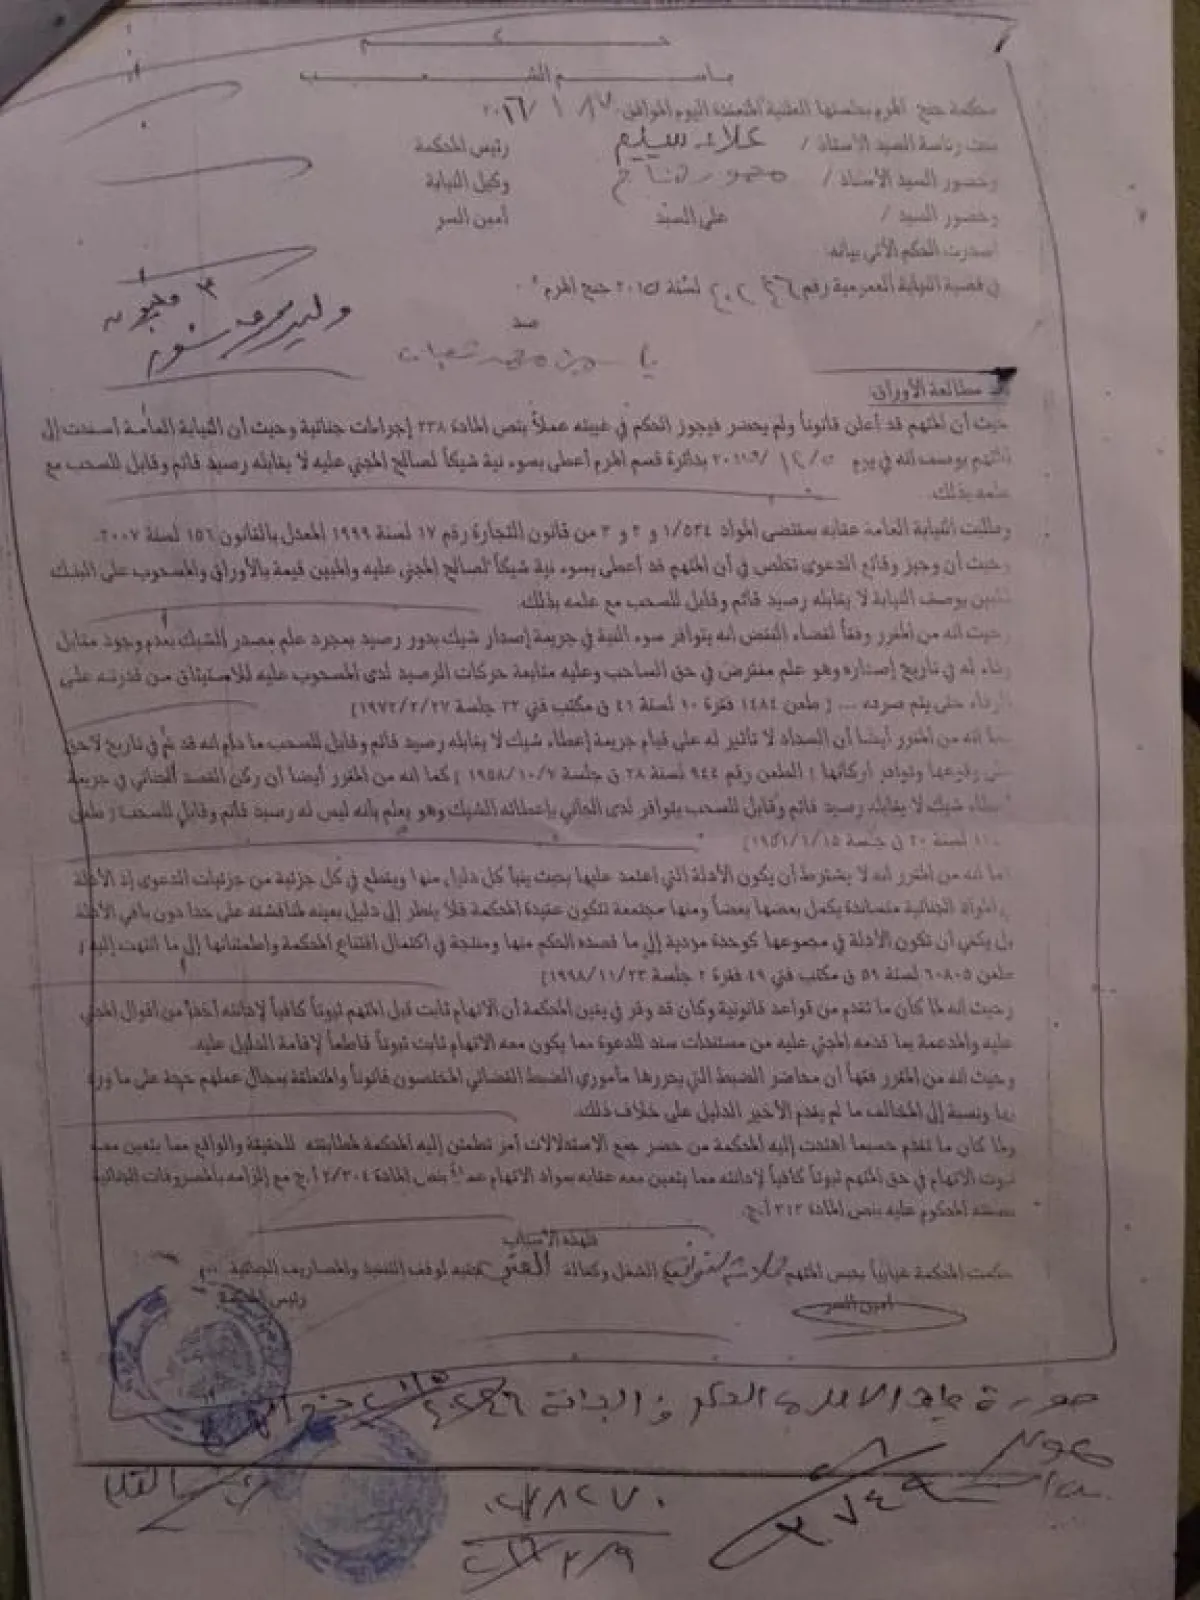 حكم
باسم الشعب
محكمة جنح الهرم بجلستها العلنية المنعقدة اليوم الموافق
تحت رئاسة السيد الأستاذ / علاء سليم رئيس المحكمة
وحضور السيد الأستاذ / محمود وكيل النيابة
وحضور السيد / على السيد أمين السر
اصدرت الحكم الأتى بيانه
في قضية النيابة العمومية رقم ٢٠٢٤٦ لسنة ٢٠١٥ جنح الهرم
ضد
محمد شعبان
٣ مليون
وليد
مطالعة الأوراق
حيث أن المتهم قد أعلن قانوناً ولم يحضر فيجوز الحكم في غيبته عملاً بنص المادة ٢٣٨ إجراءات جنائية وحيث أن النيابة العامة أسندت إلى
المتهم بوصف انه في يوم بدائرة قسم الهرم أعطى بسوء نية شيكاً لصالح المجني عليه لا يقابله رصيد قائم وقابل للسحب مع
علمه بذلك.
وطلبت النيابة العامة عقابه بمقتضى المواد ١/٥٣٤ و ٢ و ٣ من قانون التجارة رقم ١٧ لسنة ١٩٩٩ المعدل بالقانون ١٥٦ لسنة ٢٠٠٧.
وحيث أن وجيز وقائع الدعوى تخلص في أن المتهم قد أعطى بسوء نية شيكاً لصالح المجني عليه والمبين قيمة بالأوراق والمسحوب على البنك
المبين بوصف النيابة لا يقابله رصيد قائم وقابل للسحب مع علمه بذلك.
وحيث انه من المقرر وفقاً لقضاء النقض انه يتوافر سوء النية في جريمة إصدار شيك بدون رصيد بمجرد علم مصدر الشيك بعدم وجود مقابل
وفاء له في تاريخ إصداره وهو علم مفترض في حق الساحب وعليه متابعة حركات الرصيد لدى المسحوب عليه للاستيثاق من قدرته على
الوفاء حتى يتم صرفه ... ( طعن ١٤٨٤ فقرة ١٠ لسنة ٤١ ق مكتب فني ٢٣ جلسة ١٩٧٢/٢/٢٧)
كما انه من المقرر أيضا أن السداد لا تأثير له على قيام جريمة إعطاء شيك لا يقابله رصيد قائم وقابل للسحب ما دام انه قد تم في تاريخ لاحق
على وقوعها وتوافر أركانها ( الطعن رقم ٩٤٤ لسنة ٢٨ ق جلسة ١٩٥٨/١٠/٧ ) كما انه من المقرر أيضا أن ركن القصد الجنائي في جريمة
إعطاء شيك لا يقابله رصيد قائم وقابل للسحب يتوافر لدى الجاني بإعطائه الشيك وهو يعلم بانه ليس له رصيد قائم وقابل للسحب ( طعن
لسنة ٢٠ ق جلسة ١٩٥١/١/١٥)
كما انه من المقرر انه لا يشترط أن يكون الأدلة التي اعتمد عليها بحث ينبأ كل دليل منها ويقطع في كل جزئية من جزئيات الدعوى إذ الأدلة
في المواد الجنائية متساندة يكمل بعضها بعضاً ومنها مجتمعة تتكون عقيدة المحكمة فلا ينظر إلى دليل بعينه لمناقشته على حدا دون باقي الأدلة
بل يكفي أن تكون الأدلة في مجموعها كوحدة مؤدية إلى ما قصده الحكم منها ومنتجة في اكتمال اقتناع المحكمة واطمئنانها إلى ما انتهت إليه (
طعن ٦٠٨٠٥ لسنة ٥٩ ق مكتب فني ٤٩ فقرة ٢ جلسة ١٩٩٨/١١/٢٣)
وحيث انه لما كان ما تقدم من قواعد قانونية وكان قد وقر في يقين المحكمة أن الاتهام ثابت قبل المتهم ثبوتاً كافياً لإدانته أخذاً من أقوال المجني
عليه والمدعمة بما قدمه المجني عليه من مستندات سند للدعوة مما يكون معه الاتهام ثابت ثبوتاً قاطعاً لإقامة الدليل عليه.
وحيث انه من المقرر فقهاً أن محاضر الضبط التي يحررها مأموري الضبط القضائي المختصون قانوناً والمتعلقة بمجال عملهم حجة على ما ورد
بها ونسبة إلى المخالف ما لم يقدم الأخير الدليل على خلاف ذلك.
ولما كان ما تقدم حسبما اهتدت إليه المحكمة من حصر جمع الاستدلالات أمر تطمئن إليه المحكمة لمطابقته للحقيقة والواقع مما يتعين معه
ثبوت الاتهام في حق المتهم ثبوتاً كافياً لإدانته مما يتعين معه عقابه بمواد الاتهام عملا بنص المادة ٢/٣٠٤ أ.ج مع إلزامه بالمصروفات الجنائية
بصفته المحكوم عليه بنص المادة ٣١٣ أ.ج.
فلهذه الأسباب
حكمت المحكمة غيابياً بحبس المتهم ثلاث سنوات الشغل وكفالة جنيه لوقف التنفيذ والمصاريف الجنائية
أمين السر رئيس المحكمة
صورة طبق الاصل